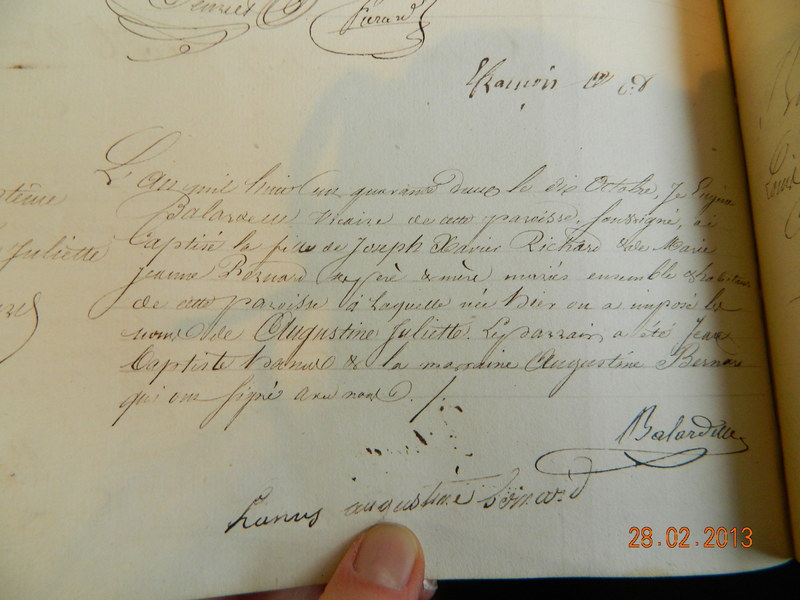 L'an mil huit cent quarante deux le dix Octobre, Je Eugène
Balardelle vicaire de cette paroisse, soussigné, ai
Baptisé la fille de Joseph Xavier Richard & de Marie
Jeanne Bernard ses père & mère mariés ensemble &
de cette paroisse à laquelle née hier on a imposé les
noms de Augustine Juliette. Le parrain a été Jean
Baptiste hanus & la marraine Augustine Bernard
qui ont signé avec nous. /.
Balardelle
hanus augustine bernard
Juliette
28.02.2013